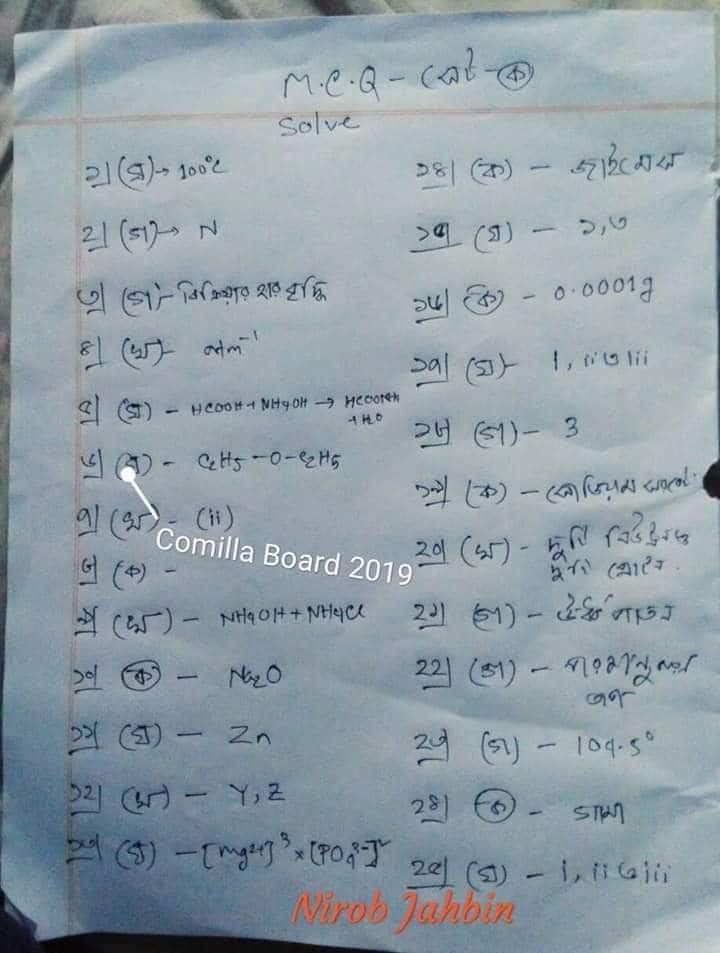 M.C.Q - সেট - ক
Solve
১| (ঘ) → 100°C
২| (গ) → N
৩| (গ) - বিক্রিয়ার হার বৃদ্ধি
৪| (খ) -
৫| (ঘ) - HCOOH + NH4OH → HCOONH4
+ H2O
৬| (ঘ) - C2H5 - O - C2H5
৭| (খ) - (ii)
৮| (ক) -
৯| (খ) - NH4OH + NH4Cl
১০| (ক) - Na2O
১১| (ঘ) - Zn
১২| (খ) - Y, Z
১৩| (ঘ) - [Mg2+]3 × [PO43-]2
১৪| (ক) - জাইমেজ
১৫| (ঘ) - ১,৩
১৬| (ক) - 0.0001g
১৭| (ঘ) - i, ii ও iii
১৮| (গ) - 3
১৯| (ক) - সোডিয়াম
২০| (খ) - দুটি নিউট্রন ও
দুটি প্রোটন.
২১| (গ) -
২২| (গ) - পারমাণবিক
২৩| (গ) - 104.5°
২৪| (ক) - তামা
২৫| (ঘ) - i, ii ও iii
Comilla Board 2019
Nirob Jahbin